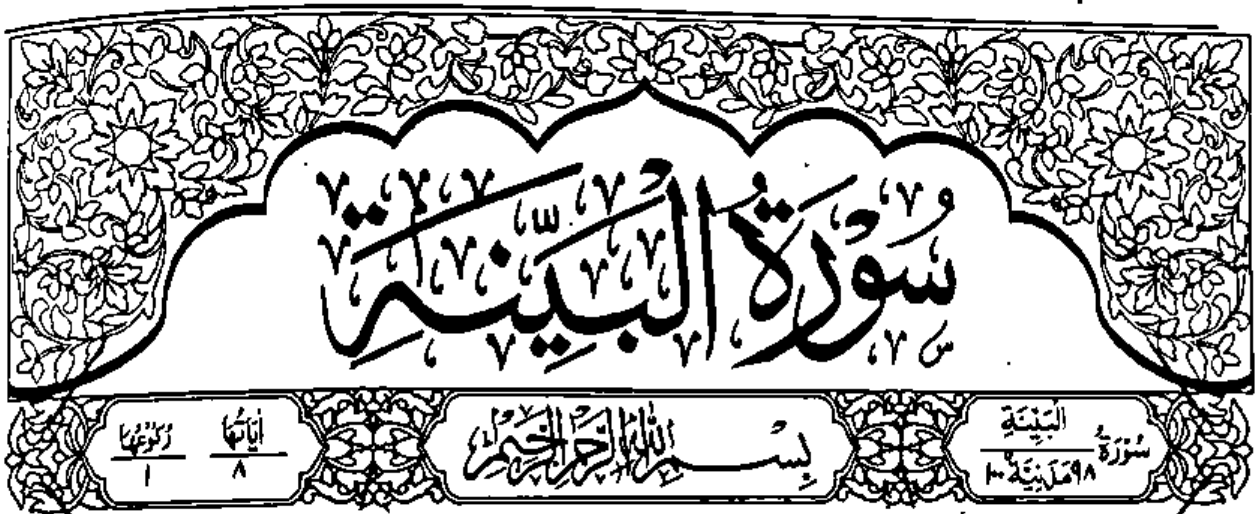 سُوْرَةُ الْبَيِّنَةِ
سُوْرَةُ الْبَيِّنَةِ ٩٨ مَدَنِيَّةٌ ١٠٠
بِسْمِ اللّٰهِ الرَّحْمٰنِ الرَّحِيْمِ
اٰيَاتُهَا ٨
رُكُوْعُهَا ١